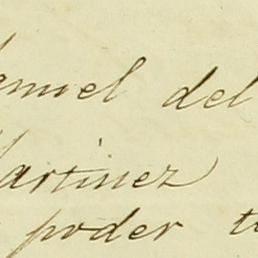 anuel del
Martinez
poder t